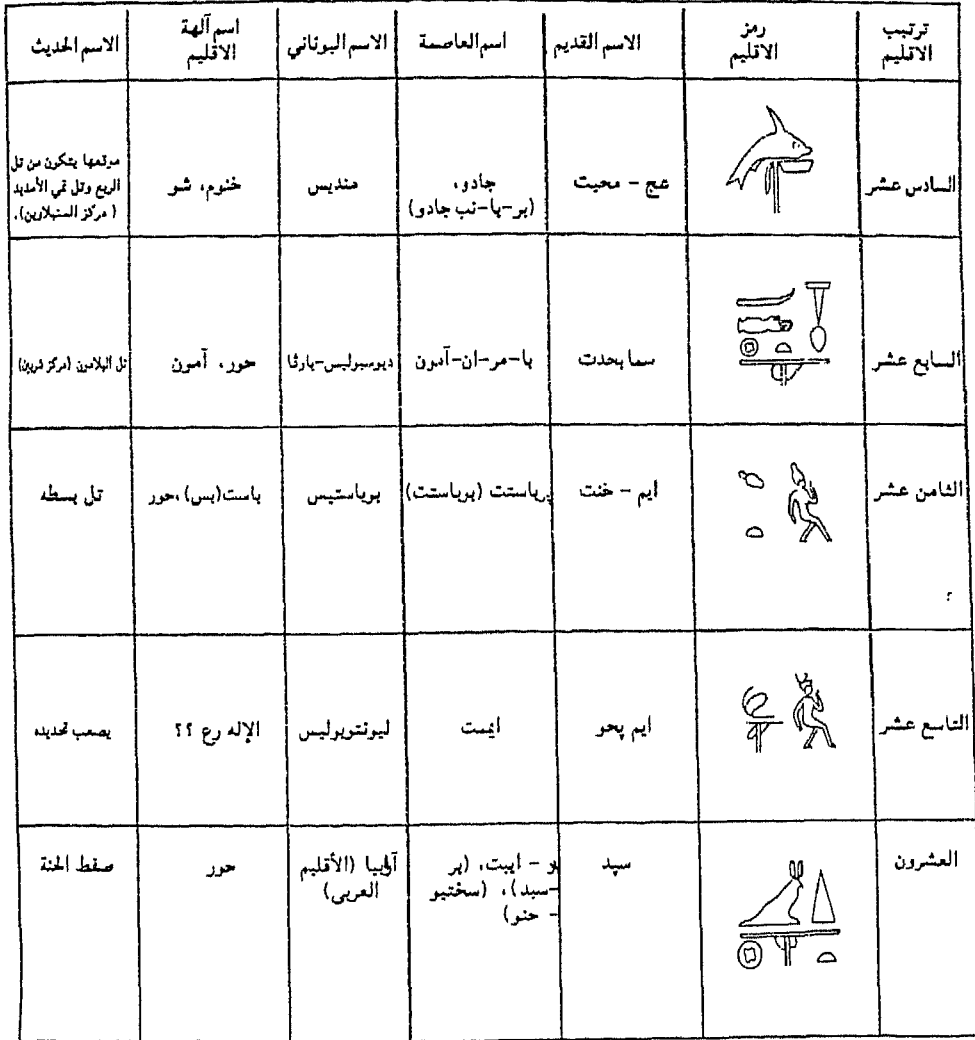 ترتيب الاقليم
رمز الاقليم
الاسم القديم
اسم العاصمة
الاسم اليوناني
اسم آلهة الاقليم
الاسم الحديث
السادس عشر
عج - محيت
جادو،
(بر-با-نب جادو)
منديس
خنوم، شو
موقعها يتكون من تل
الربع وتل تمي الأمديد
(مركز السنبلاوين).
السابع عشر
سما بحدت
با-مر-ان-آمون
ديوسبوليس-بارثا
حور، آمون
تل البلامون (مركز شربين)
الثامن عشر
ايم - خنت
برباستت (بوباستت)
بوباستيس
باست(بس)، حور
تل بسطه
؟
التاسع عشر
ايم پحو
ايمت
ليونتوبوليس
الإله رع ؟؟
يصعب تحديده
العشرون
سپد
- ايبت، (بر
-سبد)، (سختيو
- حنو)
(الأقليم
العربى)
حور
صفط الحنة